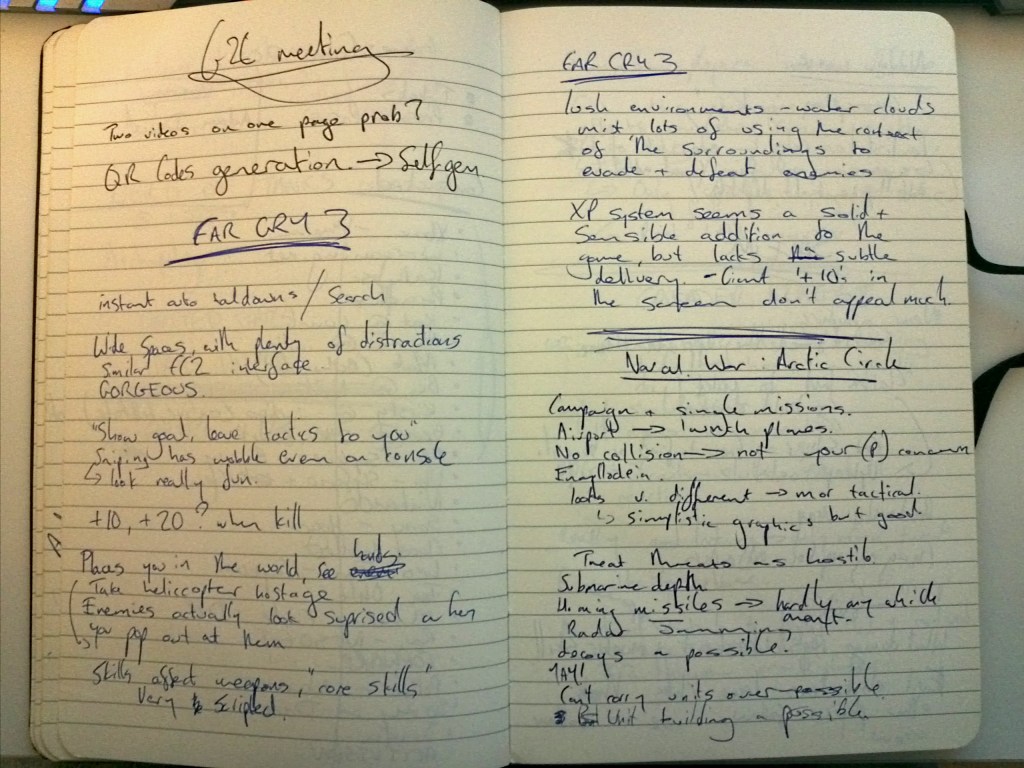 G2G meeting
Two videos on one page prob?
QR Codes generation → Self gen
FAR CRY 3
instant auto / Search
Wide spaces, with plenty of distractions
similar FC2 interface.
GORGEOUS.
"Show goal, leave tactics to you"
Sniping has wobble even on console
↳ look really fun.
+10, +20? when kill
Places you in the world, see hands.
Take heliccopter hostage
Enemies actually look suprised when
you pop out at them
Skills affect weapons, "core skills"
Very scripted.
FAR CRY 3
lush environments - water clouds
mist lots of using the context
of the surroundings to
evade + defeat enemies
XP system seems a solid +
sensible addition to the
game, but lacks subtle
delivery. - Giant '+10's in
the screen don't appeal much.
Naval War: Arctic Circle
Campaign + single missions.
Airport → launch planes.
No collision → not your (P) concern
looks v. different → mor tactical.
↳ simplistic graphics but good.
Treat threats as hostile
Submarine depth
Homing missiles → hardly any which
Radar Jamming
decoys a possible.
YAY!
Can't carry units over possible
Unit building a possible.